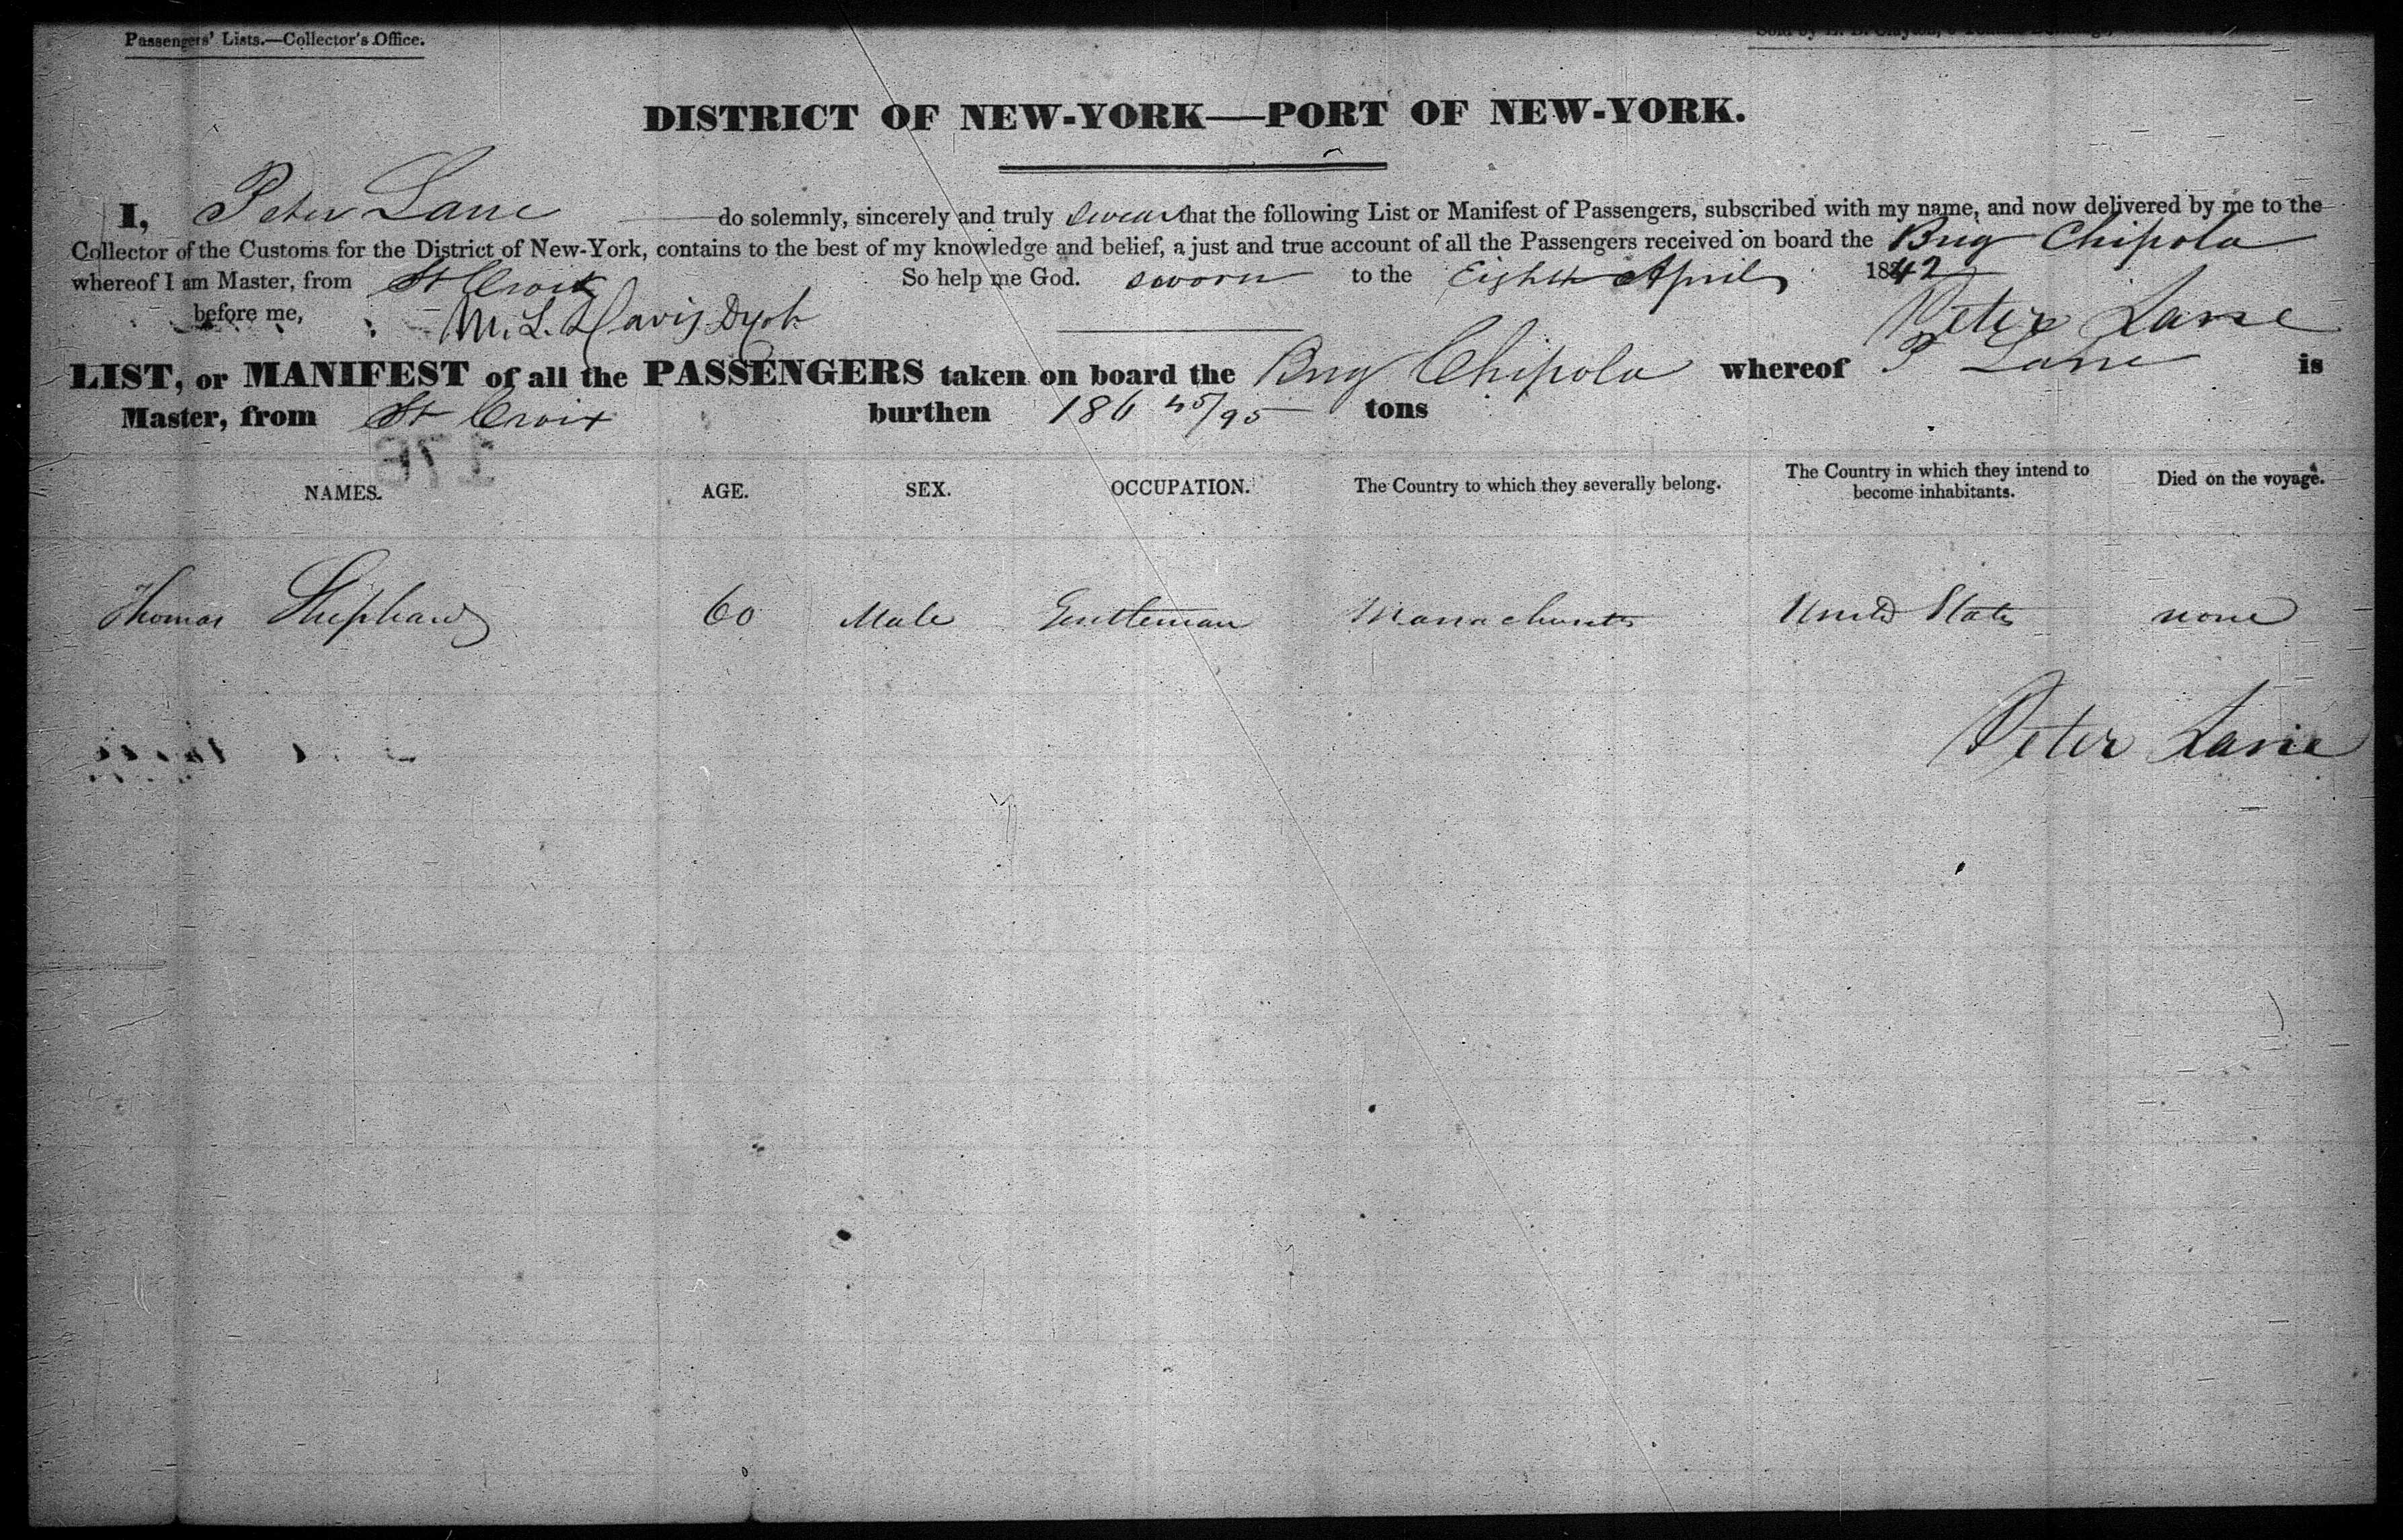 Passengers' Lists.—Collector's Office.
DISTRICT OF NEW-YORK—PORT OF NEW-YORK.
I, Peter Lane do solemnly, sincerely and truly swear that the following List or Manifest of Passengers, subscribed with my name, and now delivered by me to the
Collector of the Customs for the District of New-York, contains to the best of my knowledge and belief, a just and true account of all the Passengers received on board the Brig Chipola
whereof I am Master, from St Croix So help me God. sworn to the Eighth April 1842
before me, M. L. Davis Peter Lane
LIST, or MANIFEST of all the PASSENGERS taken on board the Brig Chipola whereof P Lane is
Master, from St Croix burthen 186 45/95 tons
176
NAMES. AGE. SEX. OCCUPATION. The Country to which they severally belong. The Country in which they intend to become inhabitants. Died on the voyage.
Thomas Shephard 60 Male Gentleman Massachusetts United States none
Peter Lane